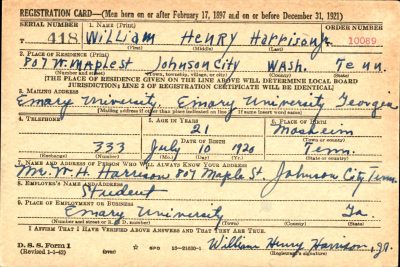 REGISTRATION CARD—(Men born on or after February 17, 1897 and on or before December 31, 1921)
SERIAL NUMBER 1. NAME (Print) ORDER NUMBER
418 William Henry Harrison Jr. 10089
(First) (Middle) (Last)
2. PLACE OF RESIDENCE (Print)
807 W. Maple St Johnson City Wash. Tenn.
(Number and street) (Town, township, village, or city) (County) (State)
[THE PLACE OF RESIDENCE GIVEN ON THE LINE ABOVE WILL DETERMINE LOCAL BOARD
JURISDICTION; LINE 2 OF REGISTRATION CERTIFICATE WILL BE IDENTICAL]
3. MAILING ADDRESS
Emory University, Emory University Georgia
[Mailing address if other than place indicated on line 2. If same insert word same]
4. TELEPHONE 5. AGE IN YEARS 6. PLACE OF BIRTH
21 Mosheim
DATE OF BIRTH (Town or county)
333 July 10 1920 Tenn.
(Exchange) (Number) (Mo.) (Day) (Yr.) (State or country)
7. NAME AND ADDRESS OF PERSON WHO WILL ALWAYS KNOW YOUR ADDRESS
W. H. Harrison 807 Maple St. Johnson City Tenn.
8. EMPLOYER'S NAME AND ADDRESS
Student
9. PLACE OF EMPLOYMENT OR BUSINESS
Emory University Ga.
(Number and street or R. F. D. number) (Town) (County) (State)
I AFFIRM THAT I HAVE VERIFIED ABOVE ANSWERS AND THAT THEY ARE TRUE.
D. S. S. Form 1
(Revised 1-1-42) GPO 16—21630-1 William Henry Harrison, Jr.
(Registrant's signature)